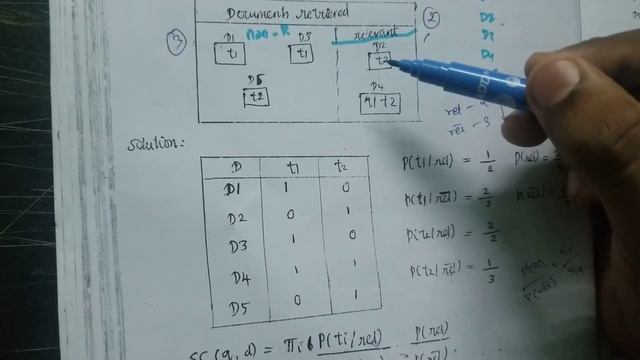 Documents retrieved
3 non-R relevant 2
D1 D3 D2
t1 t1 t2
D5 D4
t2 t1 t2
D2
D3
D4
rel - 2
rel - 3
solution:
D t1 t2
D1 1 0
D2 0 1
D3 1 0
D4 1 1
D5 0 1
P(t1/rel) = 1/2
P(t1/r̅e̅l̅) = 2/3
P(t2/rel) = 2/2
P(t2/r̅e̅l̅) = 1/3
P(rel) =
P(r̅e̅l̅) =
SC(q, d) = πi P(ti/rel) P(rel)